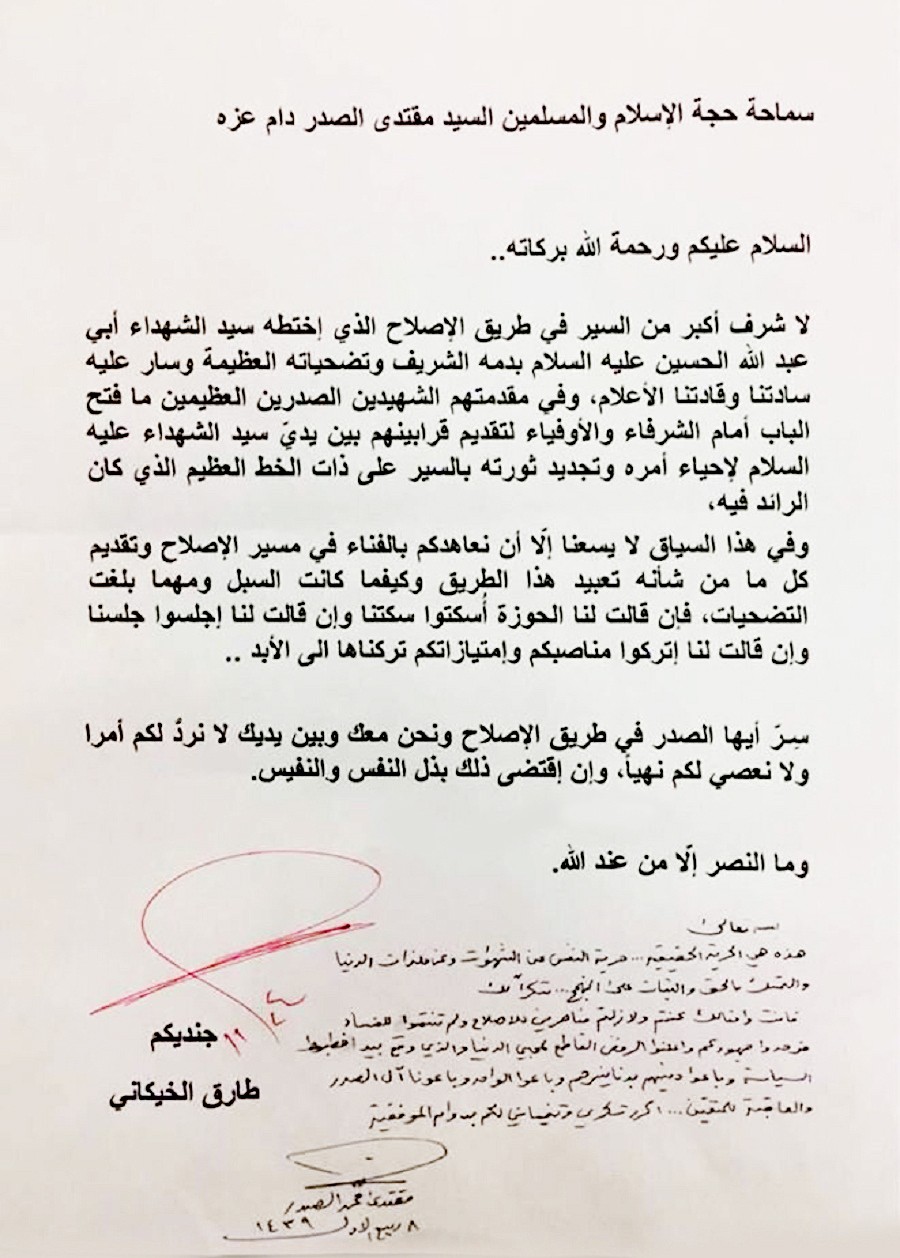 سماحة حجة الإسلام والمسلمين السيد مقتدى الصدر دام عزه
السلام عليكم ورحمة الله بركاته..
لا شرف أكبر من السير في طريق الإصلاح الذي إختطه سيد الشهداء أبي
عبد الله الحسين عليه السلام بدمه الشريف وتضحياته العظيمة وسار عليه
سادتنا وقادتنا الأعلام، وفي مقدمتهم الشهيدين الصدرين العظيمين ما فتح
الباب أمام الشرفاء والأوفياء لتقديم قرابينهم بين يديّ سيد الشهداء عليه
السلام لإحياء أمره وتجديد ثورته بالسير على ذات الخط العظيم الذي كان
الرائد فيه،
وفي هذا السياق لا يسعنا إلّا أن نعاهدكم بالفناء في مسير الإصلاح وتقديم
كل ما من شأنه تعبيد هذا الطريق وكيفما كانت السبل ومهما بلغت
التضحيات، فإن قالت لنا الحوزة أُسكتوا سكتنا وإن قالت لنا إجلسوا جلسنا
وإن قالت لنا إتركوا مناصبكم وإمتيازاتكم تركناها الى الأبد ..
سِرّ أيها الصدر في طريق الإصلاح ونحن معك وبين يديك لا نردُّ لكم أمرا
ولا نعصي لكم نهياً، وإن إقتضى ذلك بذل النفس والنفيس.
وما النصر إلّا من عند الله.
جنديكم
طارق الخيكاني
بسمه تعالى
هذه هي الحرية الحقيقية... حرية النفس من الشهوات وعن ملذات الدنيا
والتمسك بالحق والثبات على النهج... شكراً لك
فأنت وأمثالك كنتم ولازلتم مناصرين للإصلاح ولم تنتموا للفساد
فوحدوا جهودكم واعلنوا الرفض القاطع لمحبي الدنيا والذي وقع بيد اخطبوط
السياسة وباعوا دينهم بدنانيرهم وباعوا الوالد وباعونا آل الصدر
والعاقبة للمتقين... اكرر شكري وتمنياتي لكم بدوام الموفقية
مقتدى الصدر
٨ ربيع الاول ١٤٣٩